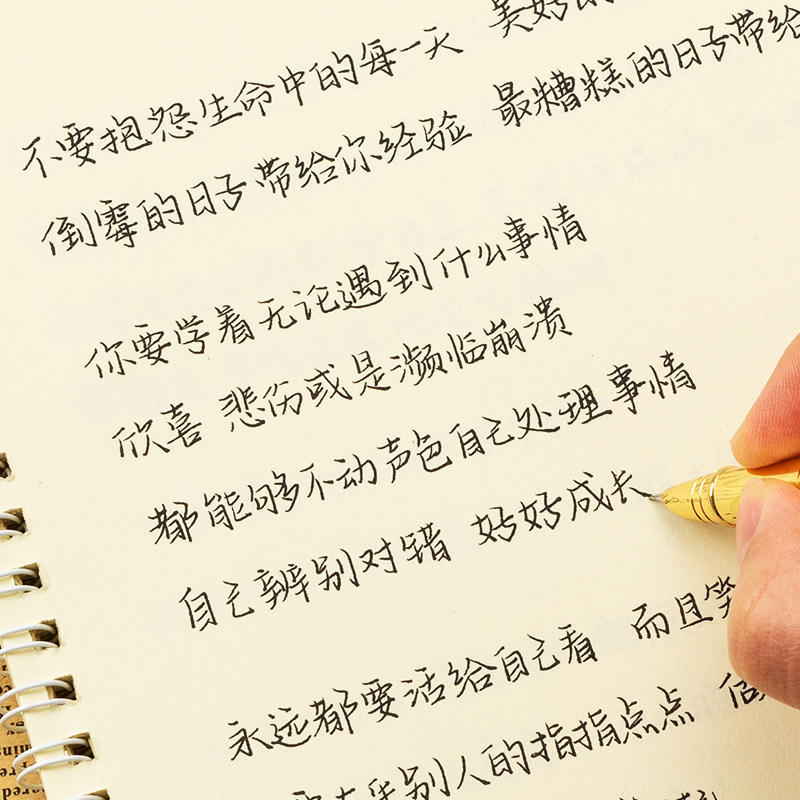 不要抱怨生命中的每一天 美好的
倒霉的日子带给你经验 最糟糕的日子带给
你要学着无论遇到什么事情
欣喜 悲伤或是濒临崩溃
都能够不动声色自己处理事情
自己辨别对错 好好成长
永远都要活给自己看 而且笑
别人的指指点点 但